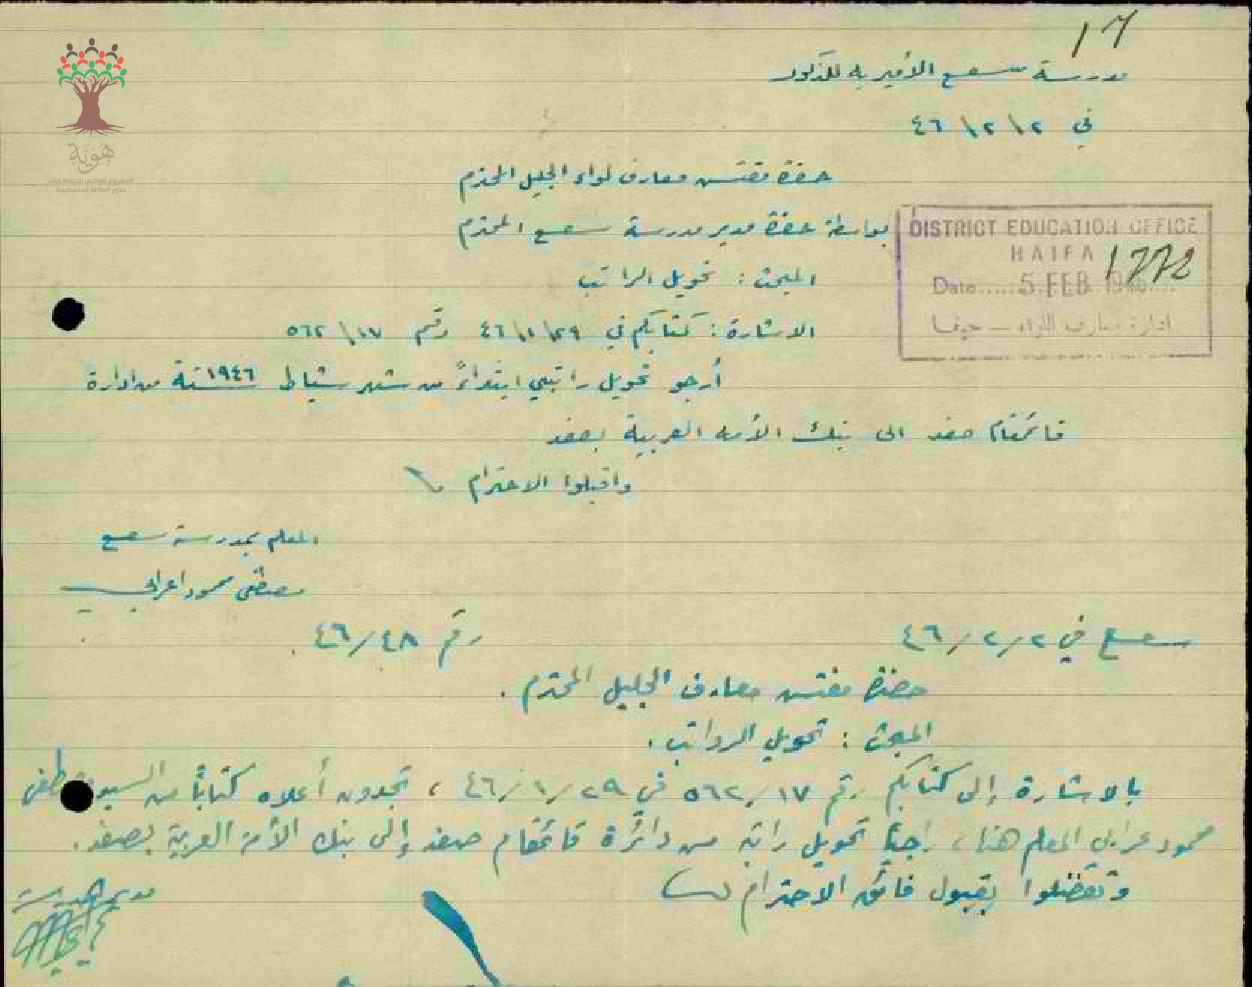 ١٦
مدرسة سعسع الأميرية للذكور
في ٢\٢\٤٦
هوية
المشروع الوطني للحفاظ على
جذور العائلة الفلسطينية
حضرة مفتش معارف لواء الجليل المحترم
بواسطة حضرة مدير مدرسة سعسع المحترم
DISTRICT EDUCATION OFFICE
HAIFA
Date..... 5 FEB 1946
ادارة معارف اللواء - حيفا
المبحث: تحويل الراتب
الاشارة: كتابكم في ٢٩\١\٤٦ رقم ١٧\٥٦٢
أرجو تحويل راتبي ابتداءً من شهر شباط سنة ١٩٤٦ من ادارة
قائمقام صفد الى بنك الأمة العربية بصفد
واقبلوا الاحترام
المعلم بمدرسة سعسع
مصطفى محمود اعرابي
سعسع في ٢/٢/٤٦ رقم ٤٦/٤٨
حضرة مفتش معارف الجليل المحترم.
المبحث: تحويل الرواتب.
بالاشارة إلى كتابكم رقم ٥٦٢/١٧ في ٢٩/١/٤٦، تجدون أعلاه كتاباً من السيد مصطفى
محمود عرابي المعلم هنا، راجياً تحويل راتبه من دائرة قائمقام صفد إلى بنك الأمة العربية بصفد.
وتفضلوا بقبول فائق الاحترام
مدير المدرسة